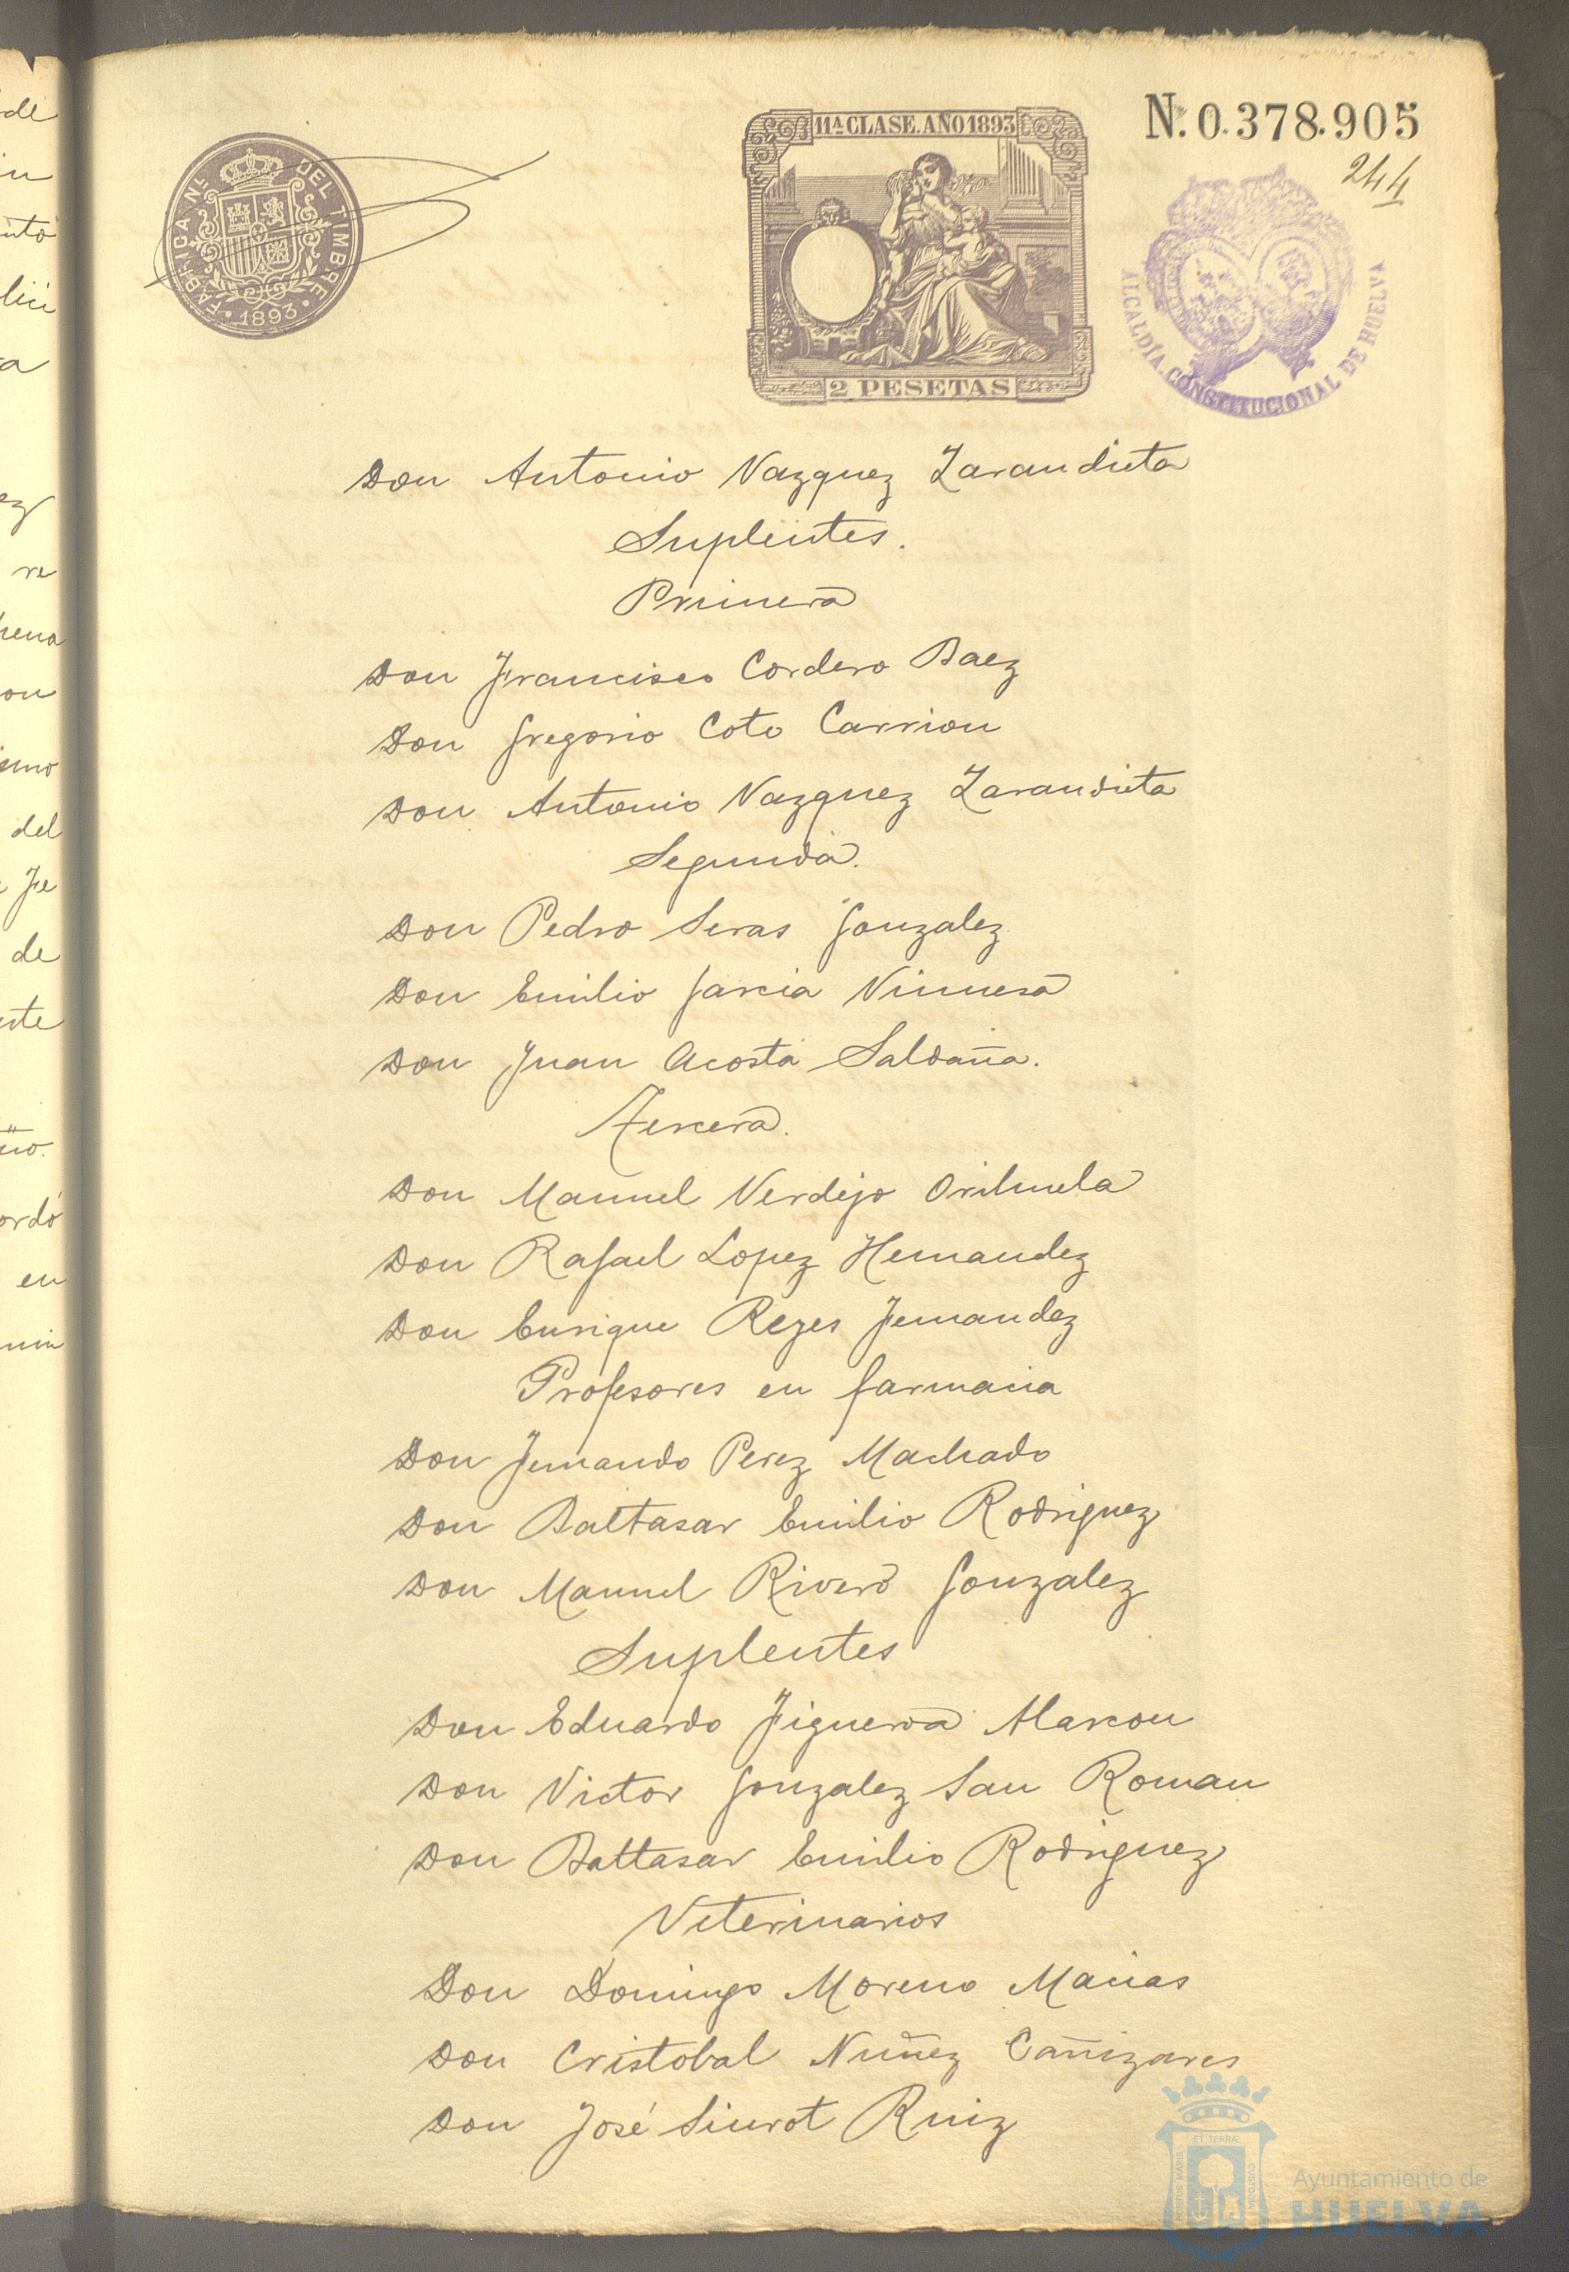 N. 0.378.905
244
11ª CLASE. AÑO 1893
FABRICA Nˡ. DEL TIMBRE
1893
2 PESETAS
ALCALDÍA CONSTITUCIONAL DE HUELVA
Don Antonio Vazquez Zarandieta
Suplentes.
Primera
Don Francisco Cordero Baez
Don Gregorio Coto Carrion
Don Antonio Vazquez Zarandieta
Segunda.
Don Pedro Seras Gonzalez
Don Emilio Garcia Vinuesa
Don Juan Acosta Saldaña.
Tercera.
Don Manuel Verdejo Orihuela
Don Rafael Lopez Hernandez
Don Enrique Reyes Fernandez
Profesores en farmacia
Don Fernando Perez Machado
Don Baltasar Emilio Rodriguez
Don Manuel Rivero Gonzalez
Suplentes
Don Eduardo Figueroa Alarcon
Don Victor Gonzalez San Roman
Don Baltasar Emilio Rodriguez
Veterinarios
Don Domingo Moreno Macias
Don Cristobal Nuñez Cañizares
Don José Siurot Ruiz
Ayuntamiento de
HUELVA